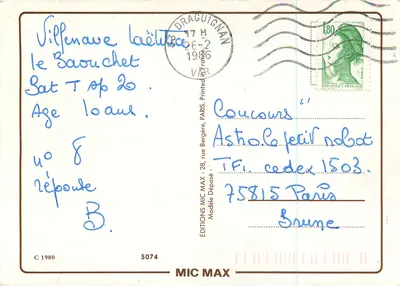 Villenave Laëtitia
le Baouchet
Bat T ap 20.
Age 10 ans.
no 8
réponse
B.
C 1980
5074
MIC MAX
ÉDITIONS MIC MAX - 28, rue Bergère, PARIS. Printed
Modèle Déposé
83 DRAGUIGNAN
17 H
26-2
1986
VAR
1,80
Concours "
Astro le petit robot
TF1. cedex 1503.
75815 Paris
Brune